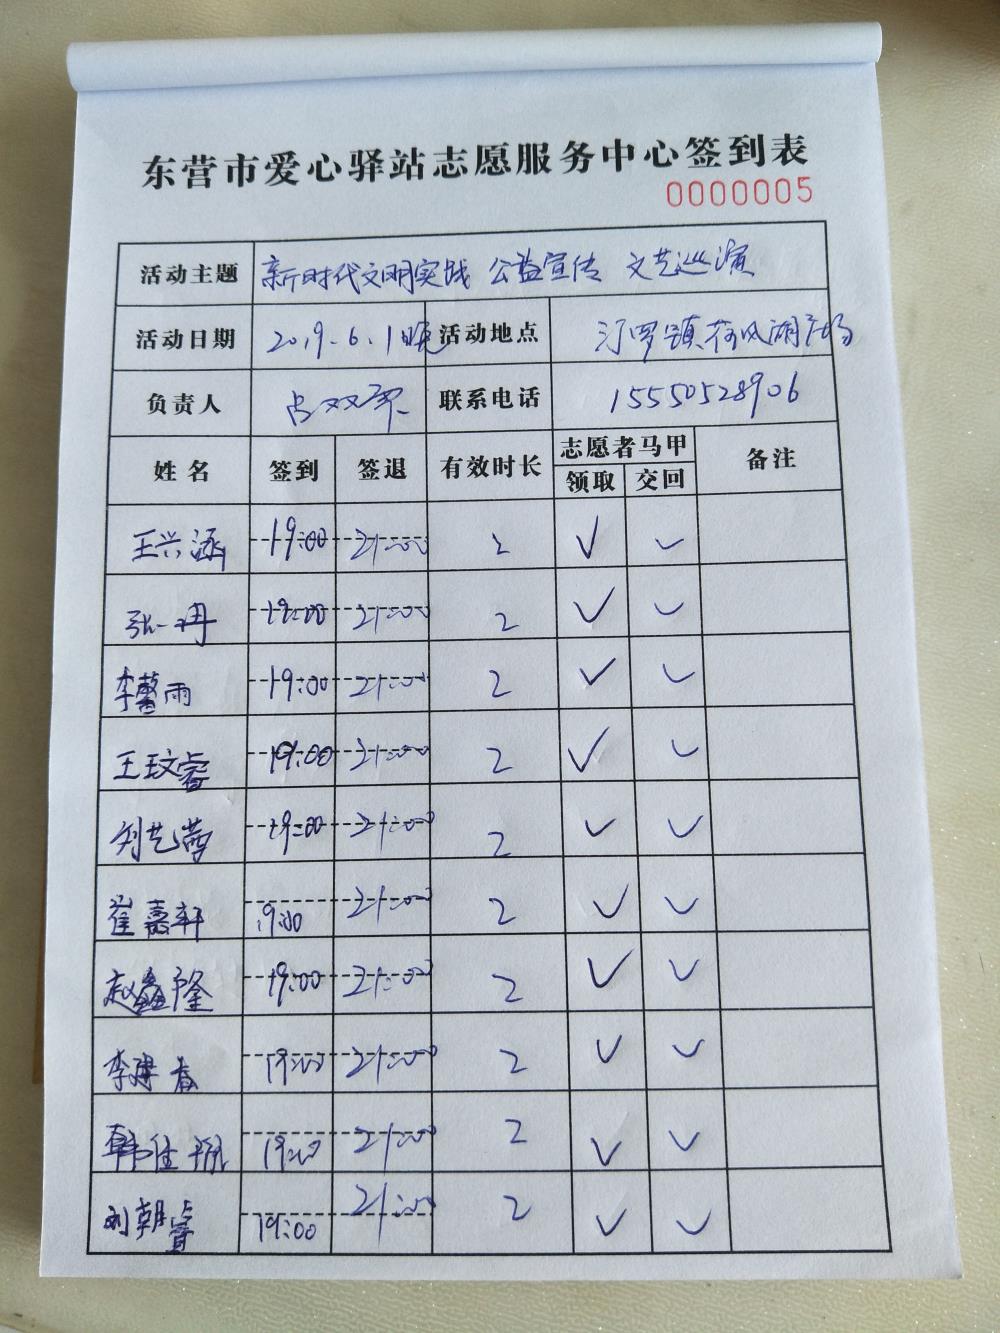 东营市爱心驿站志愿服务中心签到表
0000005
活动主题 新时代文明实践 公益宣传 文艺巡演
活动日期 2019.6.1晚 活动地点 汀罗镇荷风湖广场
负责人 联系电话 15550528906
姓名 签到 签退 有效时长 志愿者马甲 备注
领取 交回
王兴涵 19:00 21:00 2 ✓ ✓
张一冉 19:00 21:00 2 ✓ ✓
李馨雨 19:00 21:00 2 ✓ ✓
王玟睿 19:00 21:00 2 ✓ ✓
刘艺 19:00 21:00 2 ✓ ✓
崔嘉轩 19:00 21:00 2 ✓ ✓
赵鑫隆 19:00 21:00 2 ✓ ✓
李建春 19:00 21:00 2 ✓ ✓
韩佳 19:00 21:00 2 ✓ ✓
刘朝 19:00 21:00 2 ✓ ✓